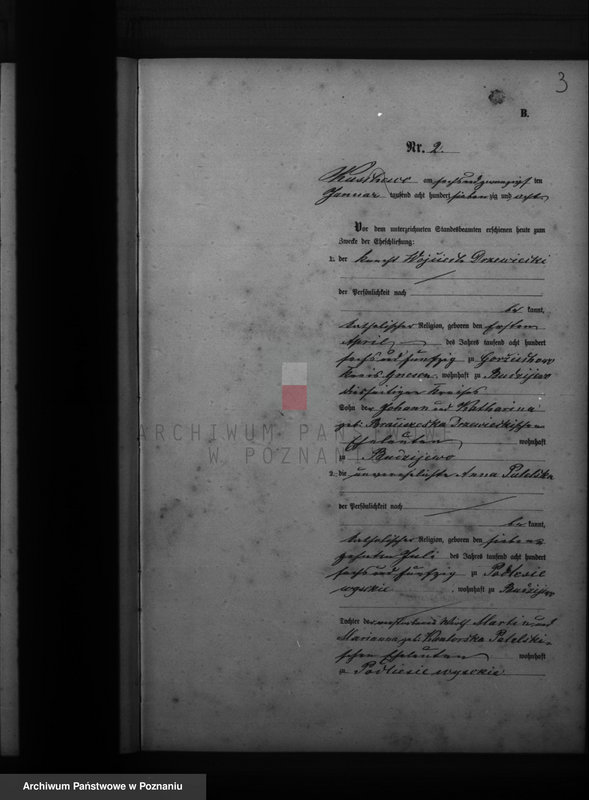 3
B.
Nr. 2.
am sechs und zwanzigsten
Januar tausend acht hundert siebenzig und acht
Vor dem unterzeichneten Standesbeamten erschienen heute zum
Zwecke der Eheschließung:
1. der Knecht Wojciech Drzewiecki
der Persönlichkeit nach
be kannt,
katholischer Religion, geboren den ersten
April des Jahres tausend acht hundert
sechs und fünfzig zu
Kreis Gnesen, wohnhaft zu Budzijewo
diesseitigen Kreises
Sohn der Johann und Katharina
geb. Drzewieckischen
Eheleuten wohnhaft
zu Budzijewo
2. die unverehelichte Anna Patelska
der Persönlichkeit nach
be kannt,
katholischer Religion, geboren den sieben
zehnten Juli des Jahres tausend acht hundert
sechs und fünfzig zu Podlesie
wysokie, wohnhaft zu Budzijewo
Tochter der Martin und
Marianna geb. Kantorska Patelski-
schen Eheleuten wohnhaft
zu Podlesie wysokie
ARCHIWUM PAŃSTWOWE
W POZNANIU
Archiwum Państwowe w Poznaniu